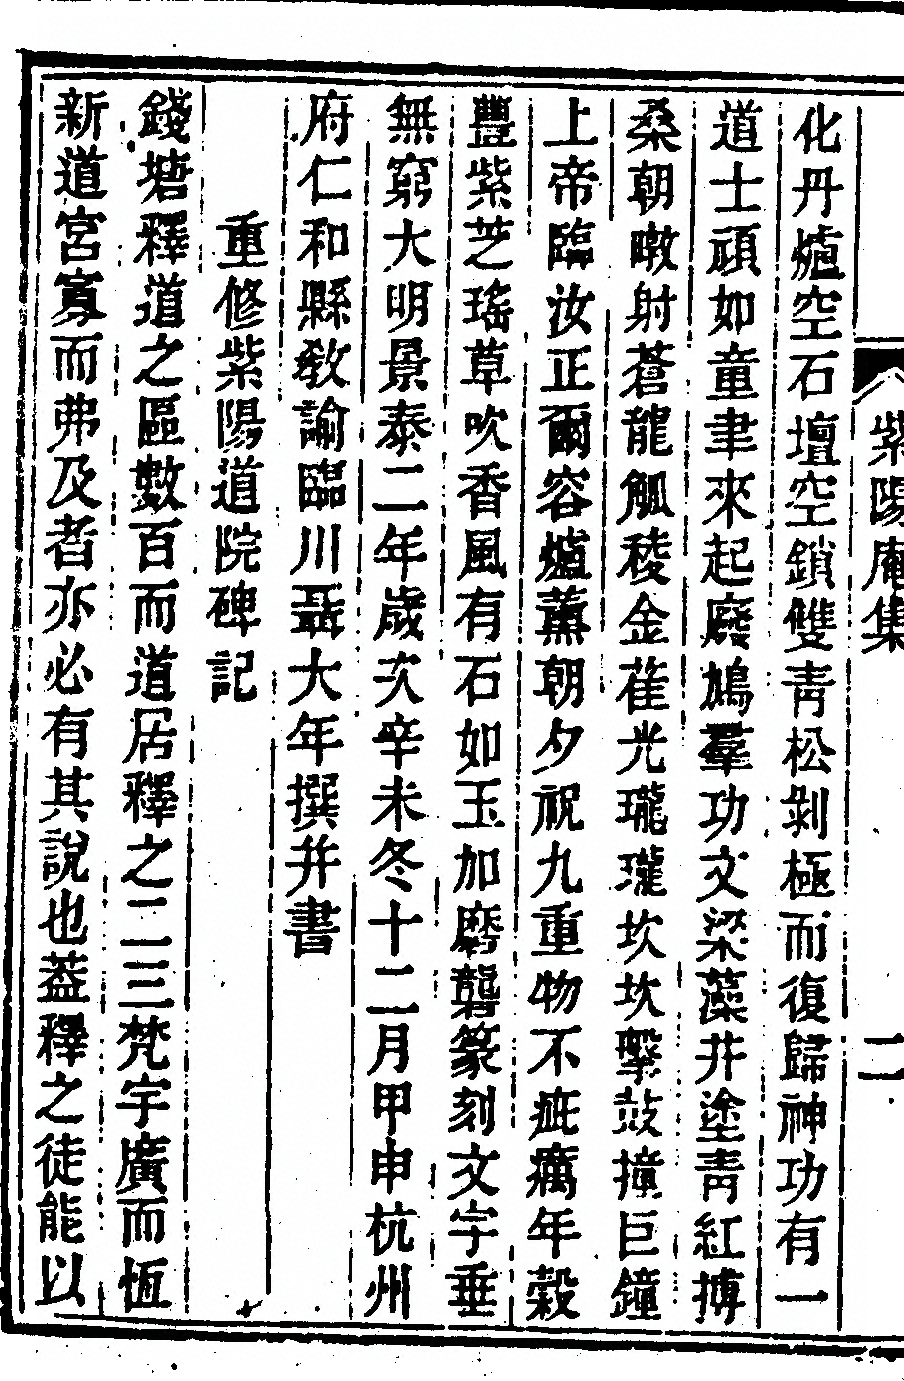 紫陽庵集
二
化丹爐空石壇空鎖雙靑松剝極而復歸神功有一
道士頑如童聿來起廢鳩羣功文梁藻井塗靑紅摶
桑朝暾射蒼龍觚稜金雀光瓏瓏坎坎擊鼓撞巨鐘
上帝臨汝正爾容爐薰朝夕祝九重物不疵癘年穀
豐紫芝瑤草吹香風有石如玉加磨礱篆刻文字垂
無窮大明景泰二年歲次辛未冬十二月甲申杭州
府仁和縣敎諭臨川聶大年撰幷書
重修紫陽道院碑記
錢塘釋道之區數百而道居釋之二三梵宇廣而恆
新道宮寡而弗及者亦必有其說也蓋釋之徒能以